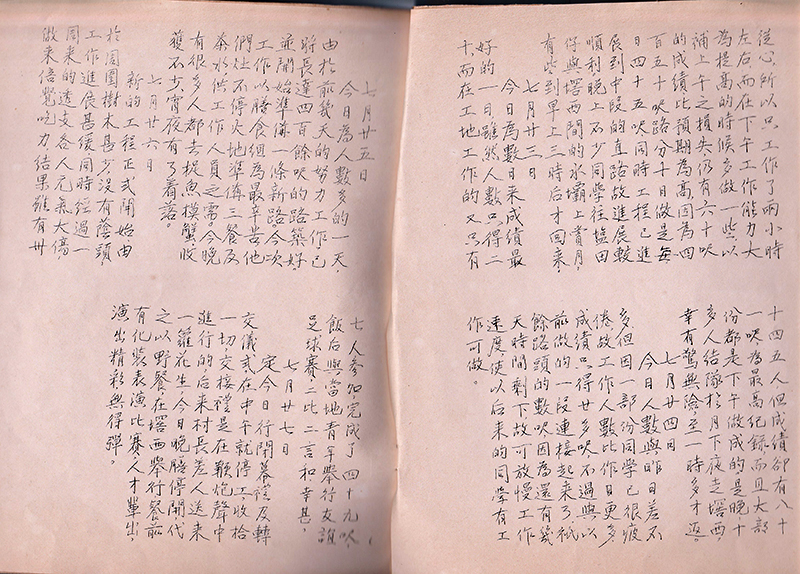 從心所以只工作了兩小時
左右而在下午工作能力大
為提高的時候多做一些以
補上午之損失仍有六十呎
的成績比預期為高因為四
百五十呎路分十日做是每
日四十五呎同時工程已進
展到中段的直路故進展較
順利晚上不少同學往塩田
仔與塔西間的水壩上賞月，
有些到早上三時后才回來。
七月廿三日
今日為數日來成績最
好的一日雖然人數只得二
十而在工地工作的又只有
十四五人但成績卻有八十
一呎為最高紀錄而且大部
份都是下午做成的是晚十
多人結隊於月下夜走塔西，
幸有驚無險，至一時多才返。
七月廿四日
今日人數與昨日差不
多，但因一部份同學已很疲
倦故工作人數比昨日更少
成績只得廿多呎不過與以
前做的一段連接起來了祇
餘路頭的數呎因為還有幾
天時間剩下故可放慢工作
速度，使以后來的同學有工
作可做。
七月廿五日
今日為人數多的一天，
由於前幾天的努力工作已
將長達四百餘呎的路築好
並開始準備一條新路，今次
工作以膳食組為最辛苦他
們灶不停火地準備三餐及
茶水供工作人員之需，今晚
有很多人都去捉魚摸蟹收
獲不少，宵夜有了着落。
七月廿六日
新的工程正式開始由
於周圍樹木甚少，沒有蔭頭，
工作進展甚緩同時經過一
周來的透支各人元氣大傷，
做來倍覺吃力結果雖有卅
七人參加，完成了四十九呎，
飯后與當地青年舉行友誼
足球賽，二比二言和幸甚。
七月廿七日
定今日行開幕禮及轉
交儀式在中午就停工收拾
一切交接禮是在鞭炮聲中
進行的后來村長差人送來
一籮花生，今日晚膳停開代
之以野餐在塔西舉行餐前
有化裝表演比賽人才輩出，
演出精彩無得彈。